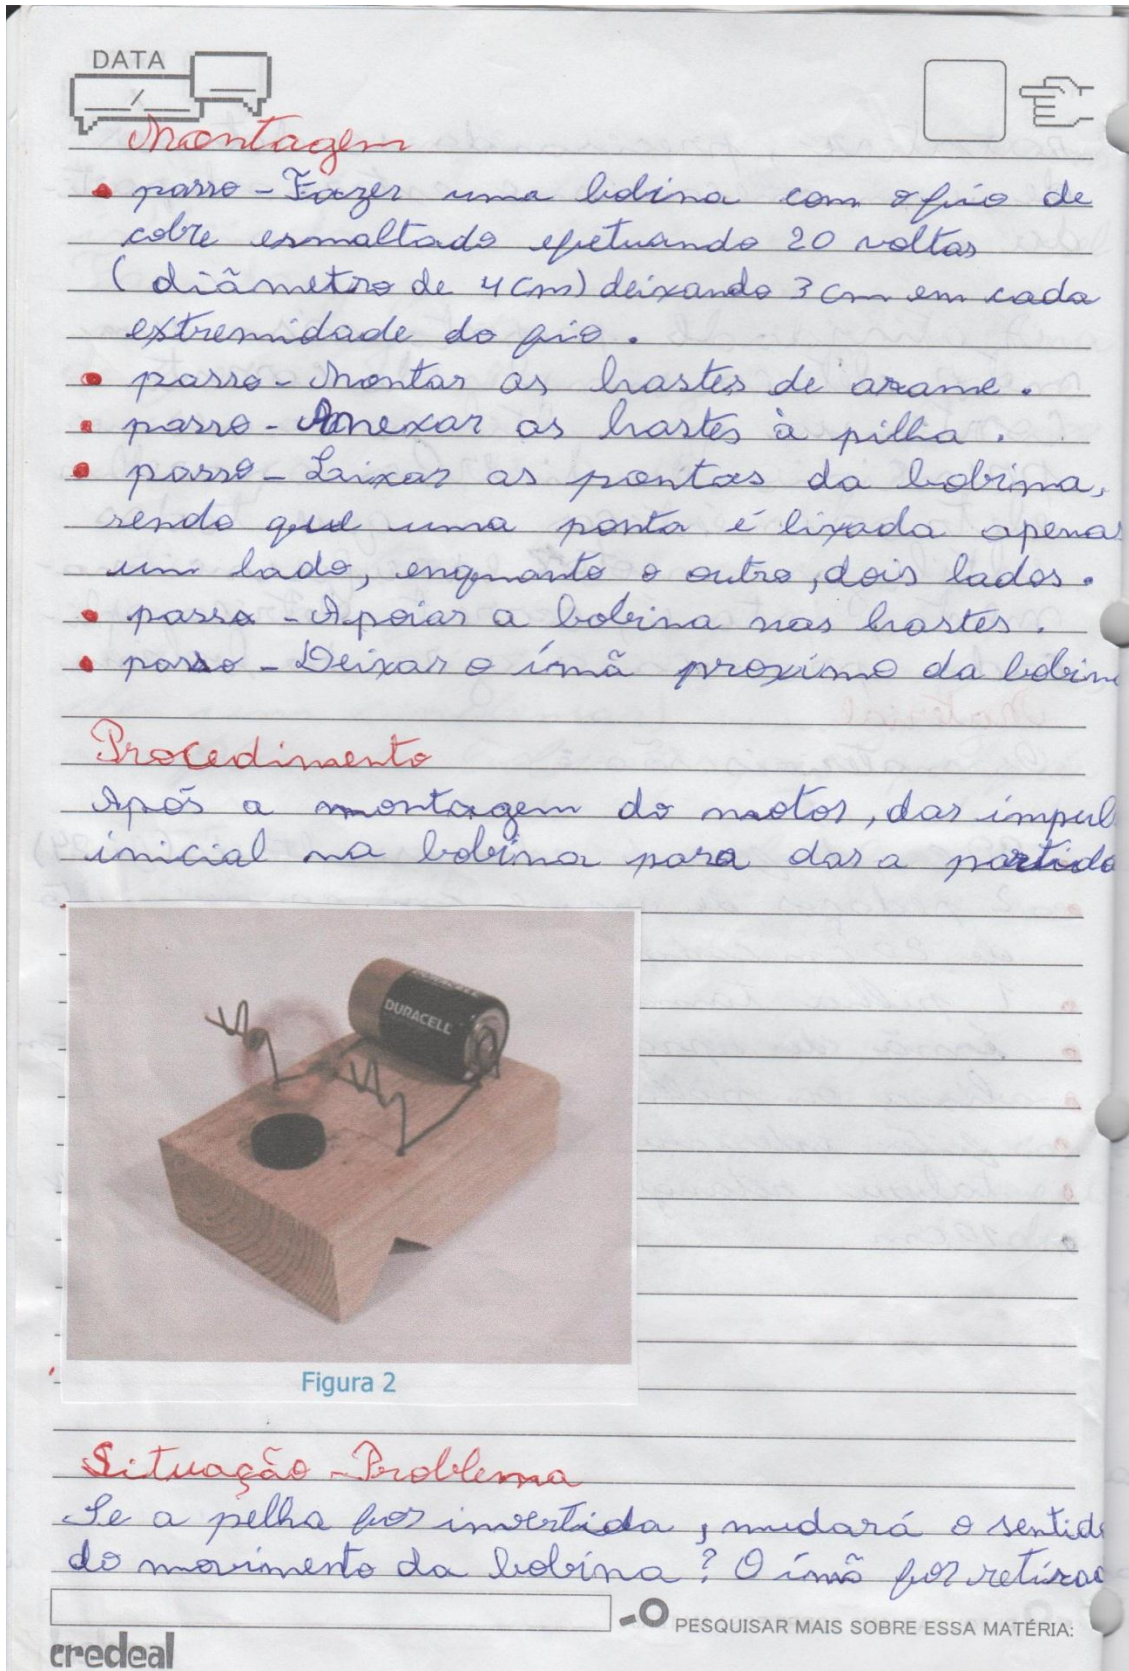 DATA
Montagem
• passo - Fazer uma bobina com o fio de
cobre esmaltado efetuando 20 voltas
(diâmetro de 4 cm) deixando 3 cm em cada
extremidade do fio.
• passo - Montar as hastes de arame.
• passo - Anexar as hastes à pilha.
• passo - Lixar as pontas da bobina,
sendo que uma ponta é lixada apenas
um lado, enquanto o outro, dois lados.
• passo - Apoiar a bobina nas hastes.
• passo - Deixar o ímã proximo da bobin
Procedimento
Após a montagem do motor, dar impul
inicial na bobina para dar a partida
DURACELL
Figura 2
Situação - Problema
Se a pelha for invertida, mudará o sentid
do movimento da bobina? O ímã for retirad
PESQUISAR MAIS SOBRE ESSA MATÉRIA:
credeal